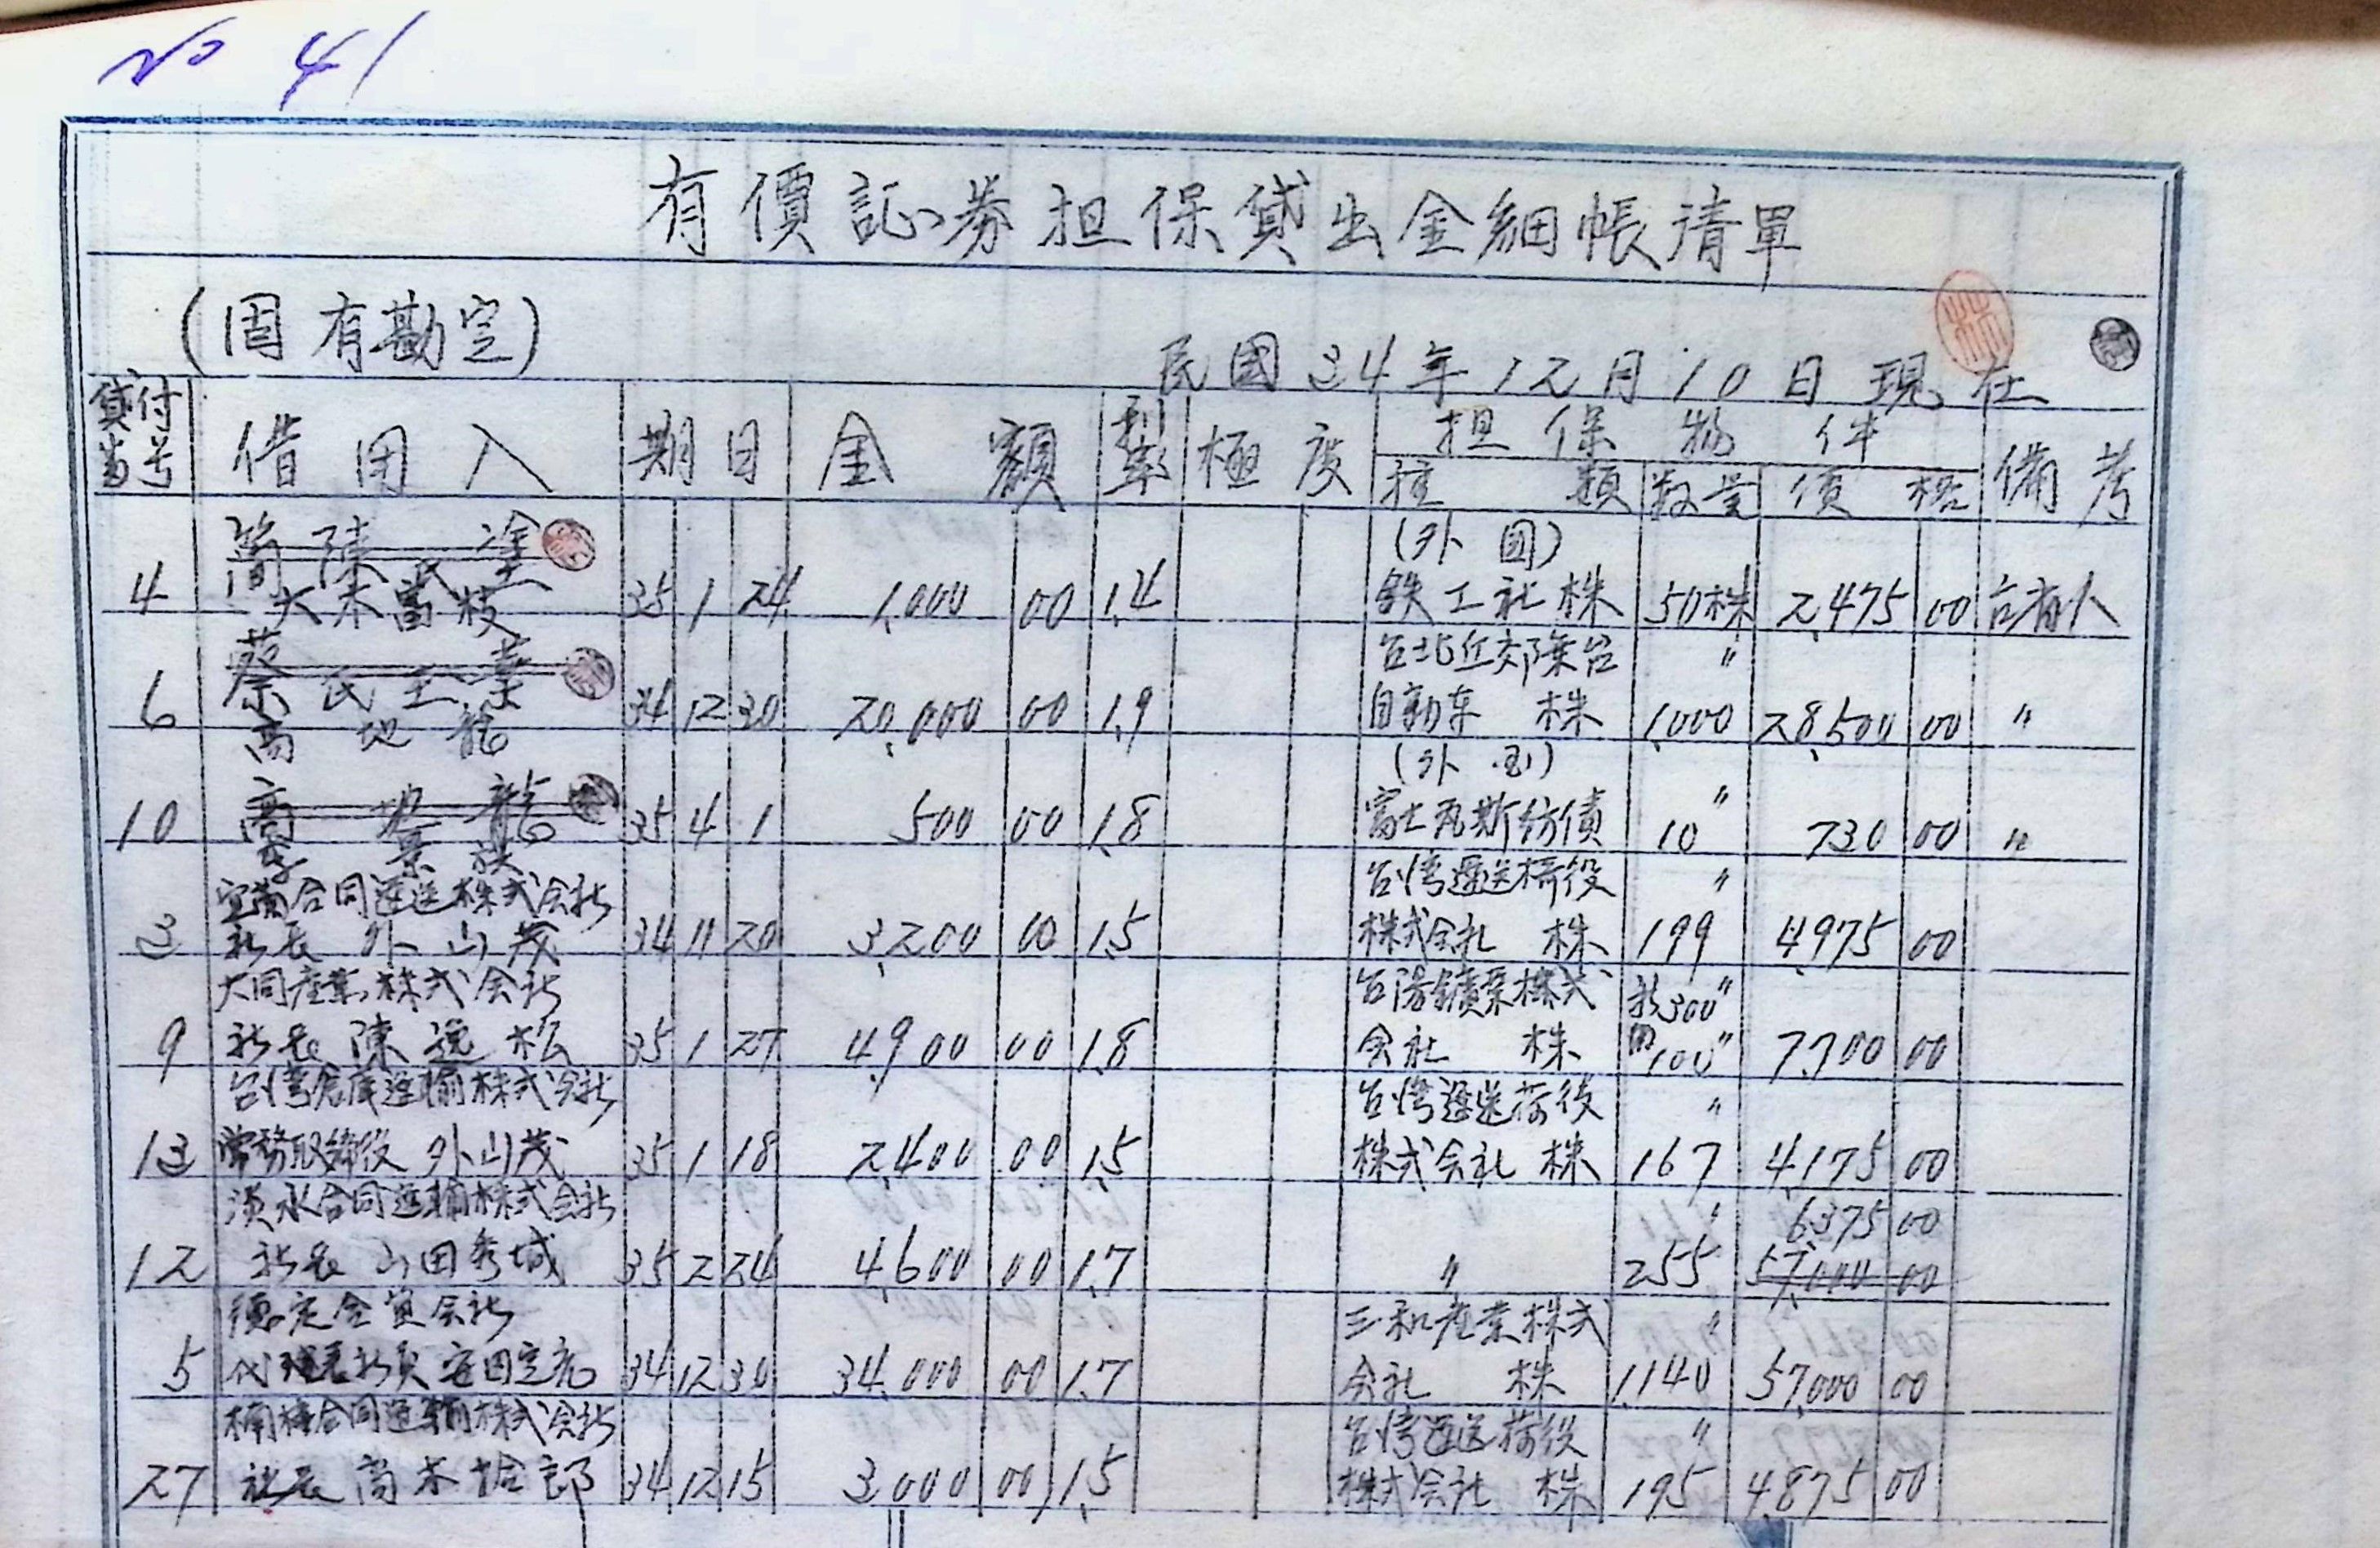 No 41
有價証券担保貸出金細帳清單
(固有勘定)
民國34年12月10日現在
貸付番号 借用人 期日 金額 利率 極度 担保物件 備考
種類 数量 價格
簡陳氏塗 (外國)
4 大木富枝 35 1 24 1,000 00 1.4 鉄工社株 50株 2,475 00 台湾人
蔡氏玉葉 台北近郊乗合 〃
6 高地龍 34 12 30 20,000 00 1.9 自動車株 1,000 28,500 00 〃
(外国)
10 高地龍 35 4 1 500 00 1.8 富士瓦斯紡債 10〃 730 00 〃
李景祺
宜蘭合同運送株式会社 台湾運送荷役 〃
3 社長 外山茂 34 11 20 3,200 00 1.5 株式会社 株 199 4,975 00
大同産業株式会社 台陽鑛業株式 新300〃
9 社長 陳逸松 35 1 27 4,900 00 1.8 会社 株 旧100〃 7,700 00
台湾倉庫運輸株式会社 台湾運送荷役 〃
13 常務取締役 外山茂 35 1 18 2,400 00 1.5 株式会社 株 167 4,175 00
淡水合同運輸株式会社 〃 6,375 00
12 社長 山田秀城 35 2 24 4,600 00 1.7 〃 255 57,000 00
德定合資会社 三和産業株式 〃
5 代理表社員 安田定 34 12 30 34,000 00 1.7 会社 株 1,140 57,000 00
合同運輸株式会社 台湾運送荷役 〃
27 社長 高木拾郎 34 12 15 3,000 00 1.5 株式会社 株 195 4,875 00